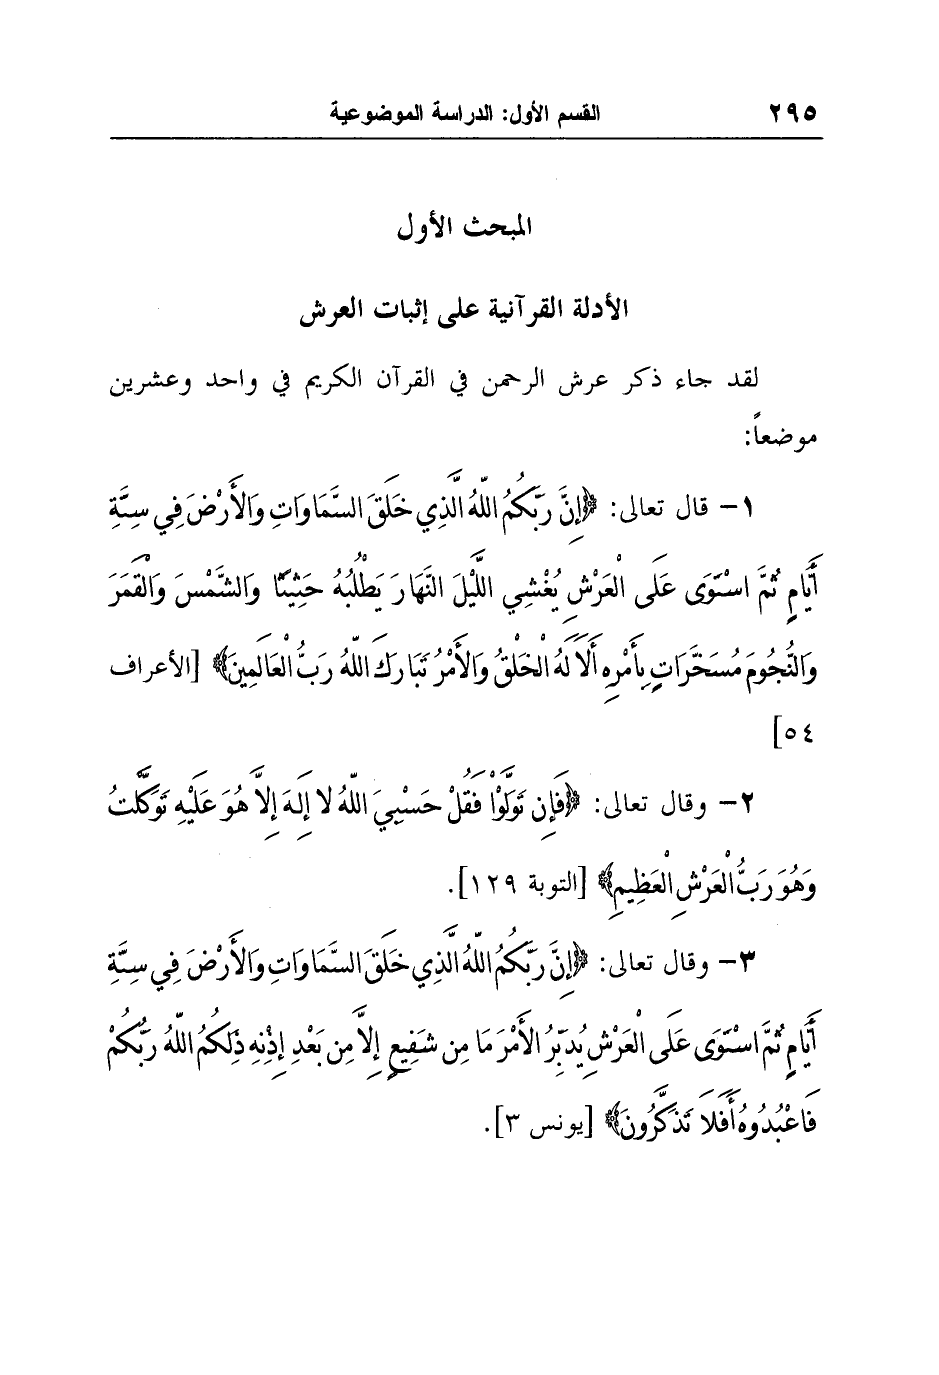 ٢٩٥ القسم الأول: الدراسة الموضوعية
المبحث الأول
الأدلة القرآنية على إثبات العرش
لقد جاء ذكر عرش الرحمن في القرآن الكريم في واحد وعشرين
موضعاً:
١- قال تعالى: ﴿إِنَّ رَبَّكُمُ اللّهُ الَّذِي خَلَقَ السَّمَاوَاتِ وَالأَرْضَ فِي سِتَّةِ
أَيَّامٍ ثُمَّ اسْتَوَى عَلَى الْعَرْشِ يُغْشِي اللَّيْلَ النَّهَارَ يَطْلُبُهُ حَثِيثًا وَالشَّمْسَ وَالْقَمَرَ
وَالنُّجُومَ مُسَخَّرَاتٍ بِأَمْرِهِ أَلاَ لَهُ الْخَلْقُ وَالأَمْرُ تَبَارَكَ اللّهُ رَبُّ الْعَالَمِينَ﴾ [الأعراف
٥٤]
٢- وقال تعالى: ﴿فَإِن تَوَلَّوْاْ فَقُلْ حَسْبِيَ اللّهُ لا إِلَهَ إِلاَّ هُوَ عَلَيْهِ تَوَكَّلْتُ
وَهُوَ رَبُّ الْعَرْشِ الْعَظِيمِ﴾ [التوبة ١٢٩].
٣- وقال تعالى: ﴿إِنَّ رَبَّكُمُ اللّهُ الَّذِي خَلَقَ السَّمَاوَاتِ وَالأَرْضَ فِي سِتَّةِ
أَيَّامٍ ثُمَّ اسْتَوَى عَلَى الْعَرْشِ يُدَبِّرُ الأَمْرَ مَا مِن شَفِيعٍ إِلاَّ مِن بَعْدِ إِذْنِهِ ذَلِكُمُ اللّهُ رَبُّكُمْ
فَاعْبُدُوهُ أَفَلاَ تَذَكَّرُونَ﴾ [يونس ٣].